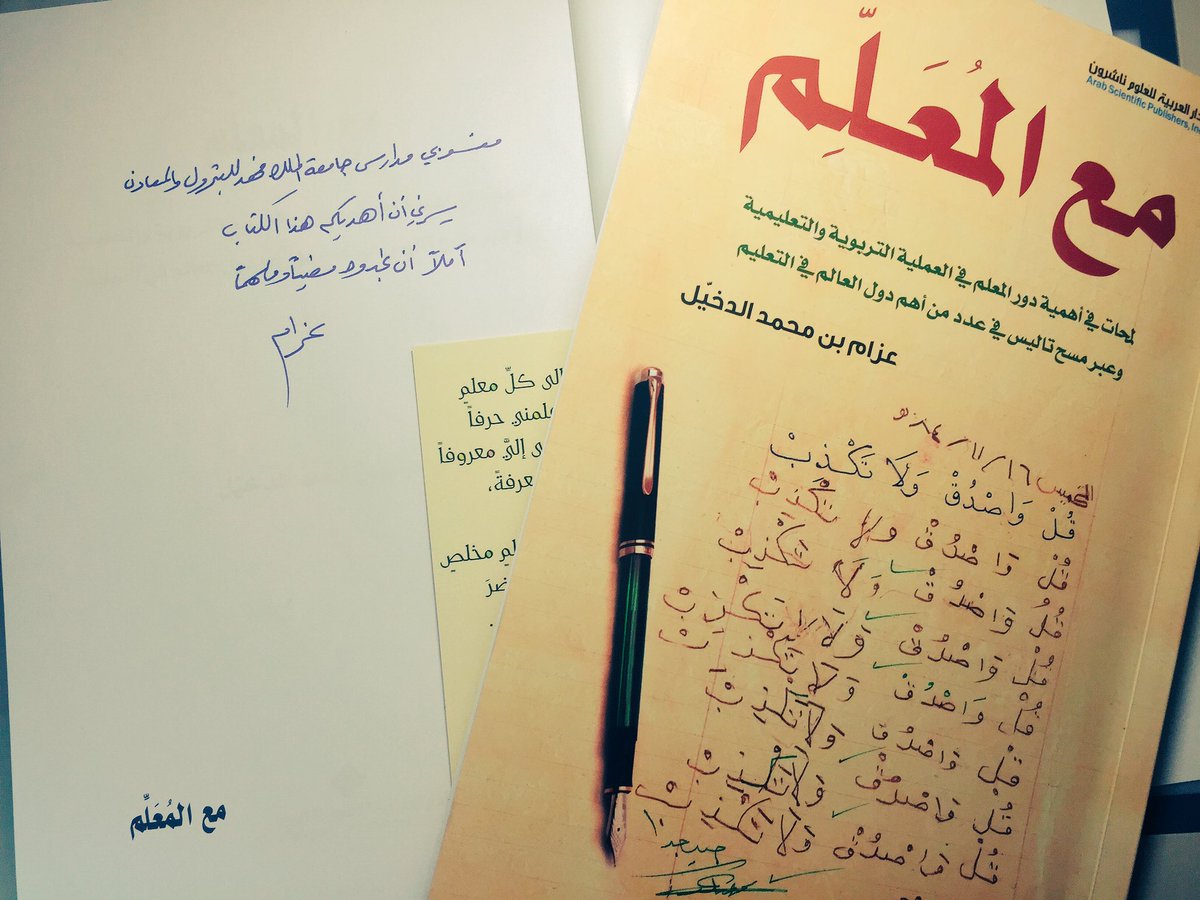 منسوبي مدارس جامعة الملك فهد للبترول والمعادن
يسرني أن أهديكم هذا الكتاب
آملاً أن تجدوه مضيئاً وملهماً
عزام
مع المُعَلِّم
إلى كلِّ معلمٍ
علمني حرفاً
إليَّ معروفاً
معرفةً،
مخلص
الدار العربية للعلوم ناشرون
Arab Scientific Publishers, Inc
مع المُعَلِّم
لمحات في أهمية دور المعلم في العملية التربوية والتعليمية
وعبر مسح تاليس في عدد من أهم دول العالم في التعليم
عزام بن محمد الدخيّل
الخميس ١٦/١١/
قُلْ وَاصْدُقْ وَلَا تَكْذِبْ
قُلْ وَاصْدُقْ وَلَا تَكْذِبْ
قُلْ وَاصْدُقْ وَلَا تَكْذِبْ
قُلْ وَاصْدُقْ وَلَا تَكْذِبْ
قُلْ وَاصْدُقْ وَلَا تَكْذِبْ
قُلْ وَاصْدُقْ وَلَا تَكْذِبْ
قُلْ وَاصْدُقْ وَلَا تَكْذِبْ
قُلْ وَاصْدُقْ وَلَا تَكْذِبْ
جيد جدا